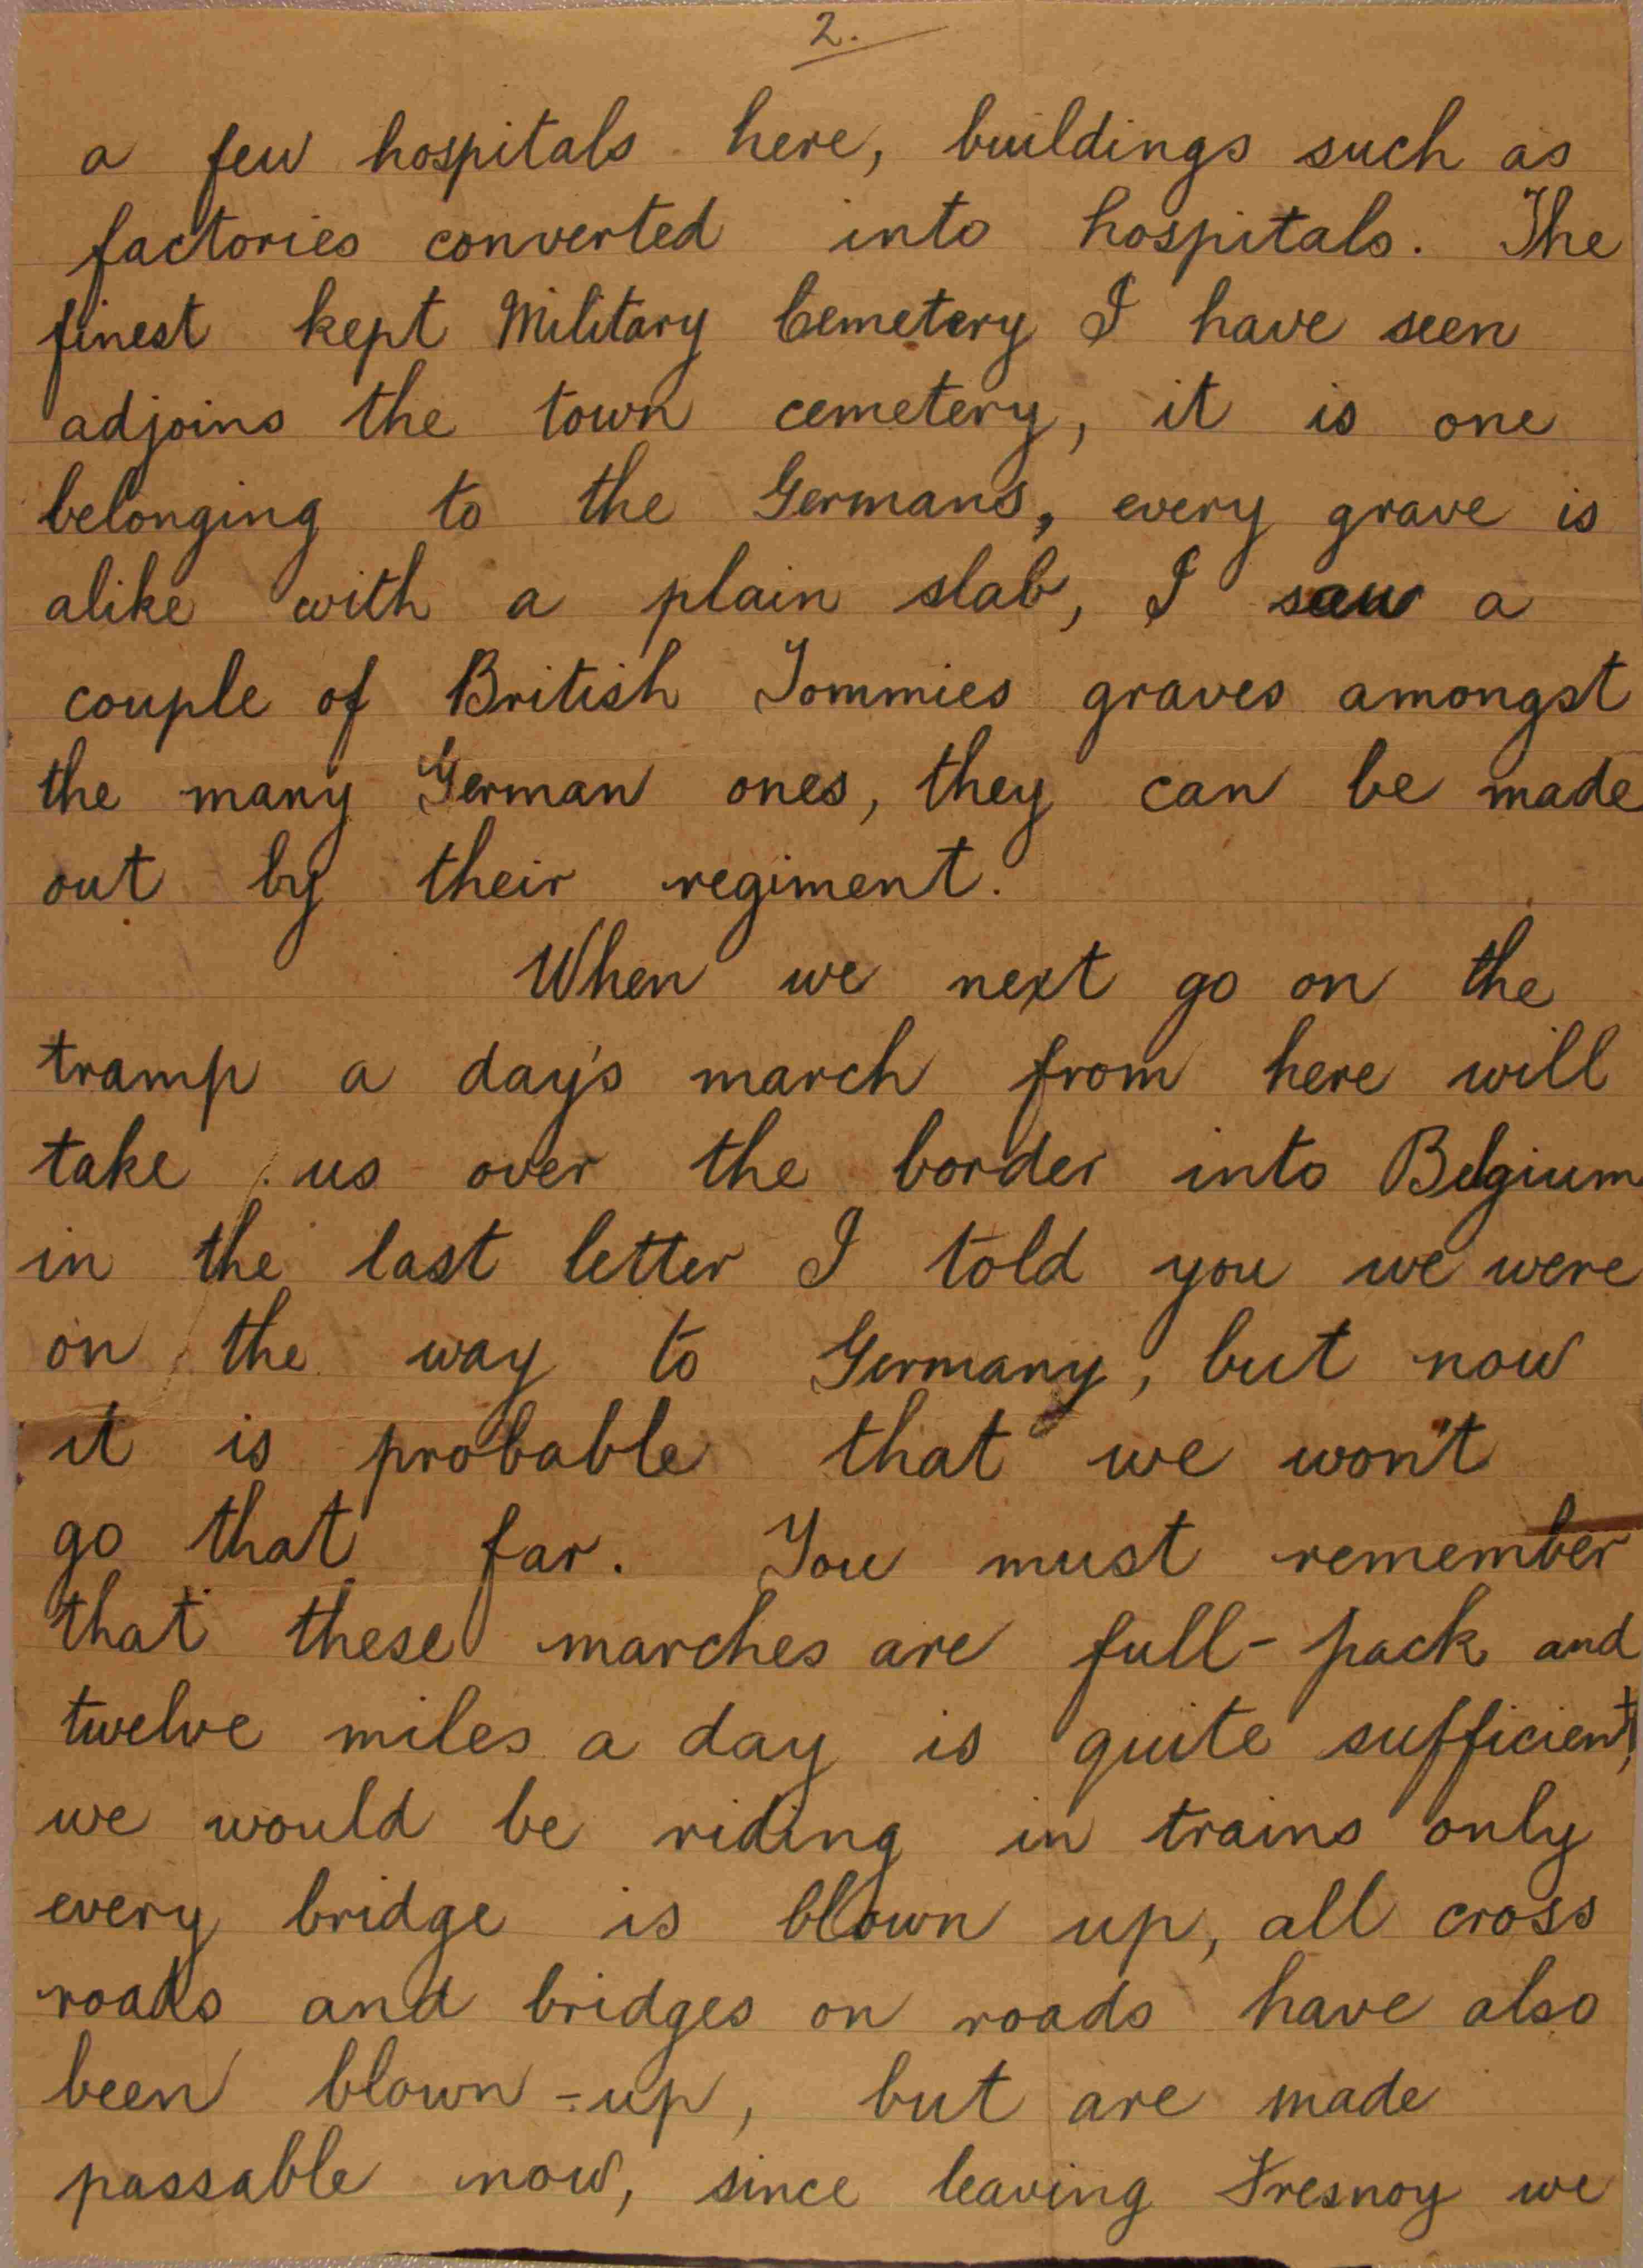 2.
a few hospitals here, buildings such as
factories converted into hospitals. The
finest kept Military Cemetery I have seen
adjoins the town cemetery, it is one
belonging to the Germans, every grave is
alike with a plain slab, I saw a
couple of British Tommies graves amongst
the many German ones, they can be made
out by their regiment.
When we next go on the
tramp a day's march from here will
take us over the border into Belgium
in the last letter I told you we were
on the way to Germany, but now
it is probable that we won't
go that far. You must remember
that these marches are full-pack and
twelve miles a day is quite sufficient,
we would be riding in trains only
every bridge is blown up, all cross
roads and bridges on roads have also
been blown-up, but are made
passable now, since leaving Fresnoy we